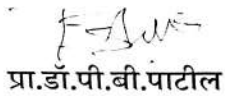 प्रा.डॉ.पी.बी.पाटील